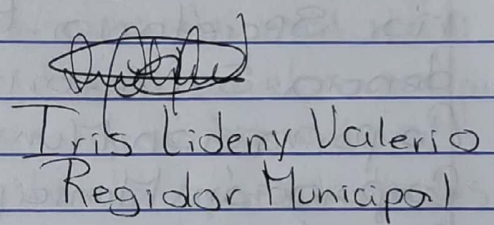 Iris Lideny Valerio
Regidor Municipal